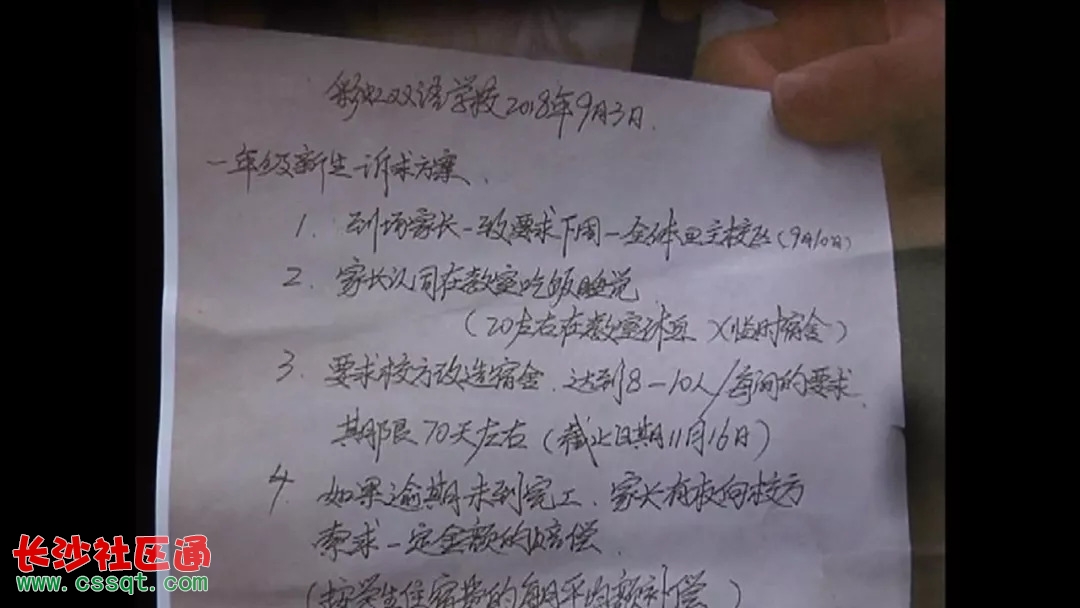 彩虹双语学校2018年9月3日.
一年级新生诉求方案.
1. 到场家长一致要求下周一全体回主校区(9月10日)
2. 家长认同在教室吃饭睡觉
(70左右在教室休息 临时宿舍)
3. 要求校方改造宿舍.达到8-10人/每间的要求.
其期限70天左右(截止日期11月16日)
4. 如果逾期未到完工、家长有权向校方
索求一定金额的赔偿.
(按学生住宿费的每月平均额补偿)
长沙社区通
www.cssqt.com